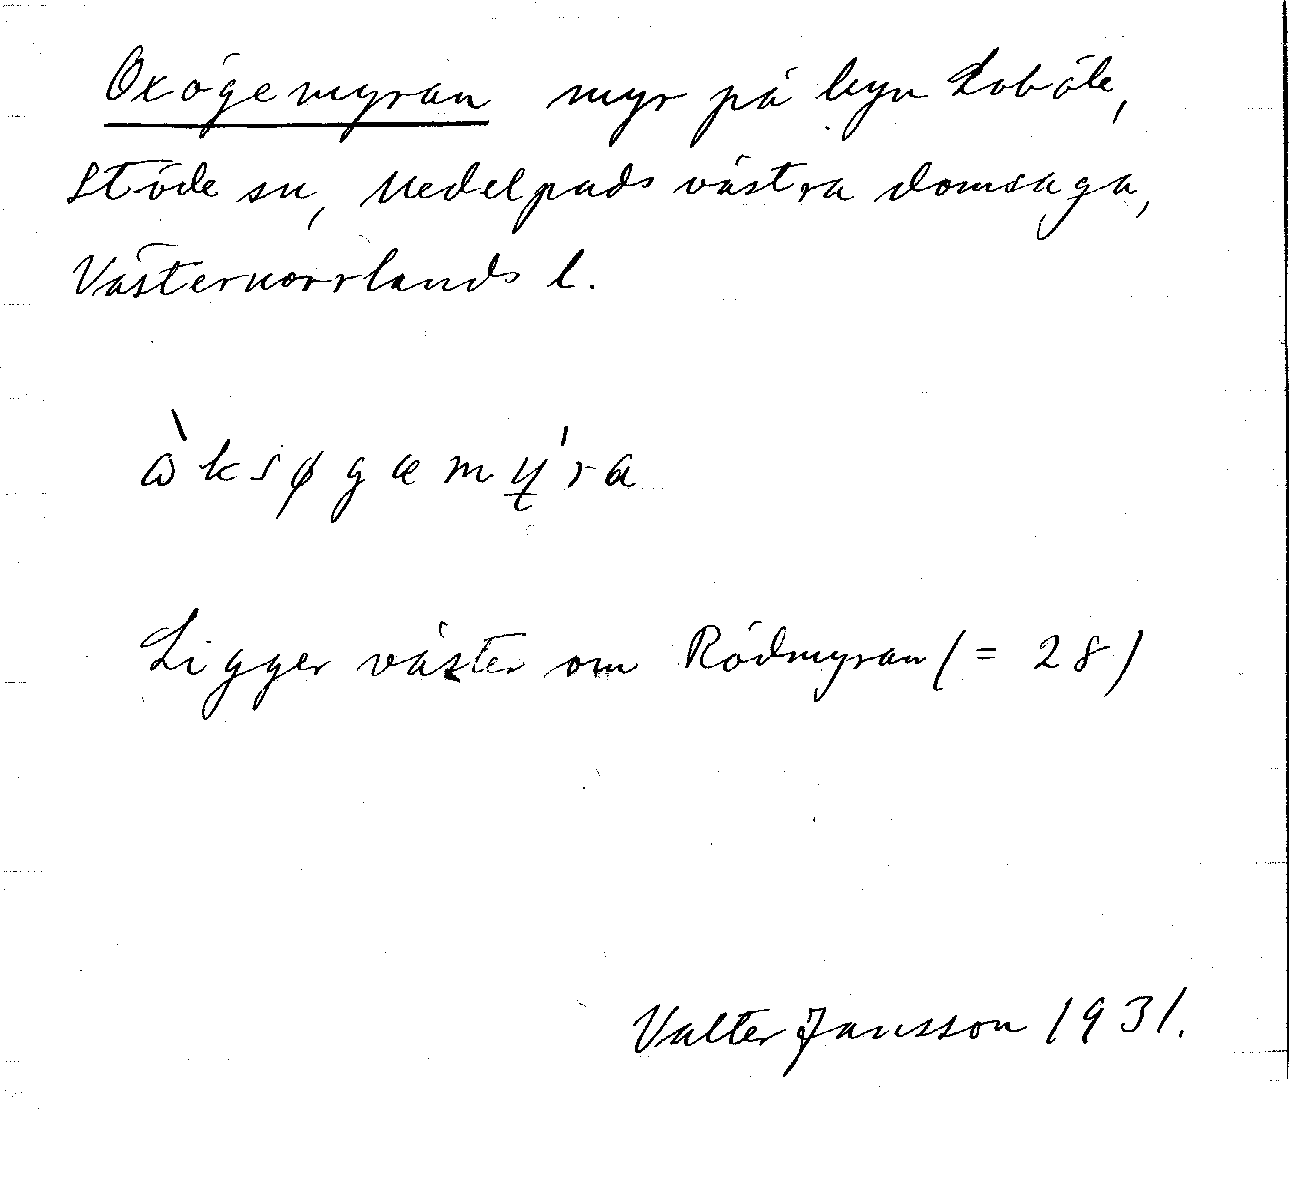 Oxögemyran myr på byn Loböle,
Stöde sn, Medelpads västra domsaga,
Västernorrlands l.
ὼksøgæmý̵ra
Ligger väster om Rödmyran (= 28)
Valter Jansson 1931.